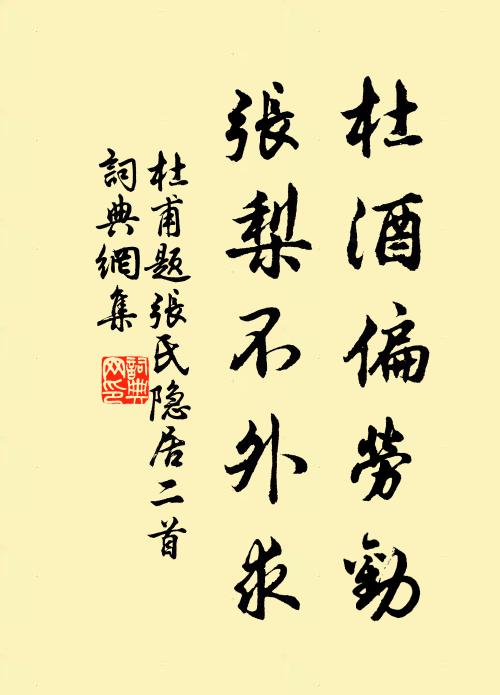 杜酒偏勞勸
張梨不外求
杜甫题張氏隐居二首
詞典網集
詞典网印